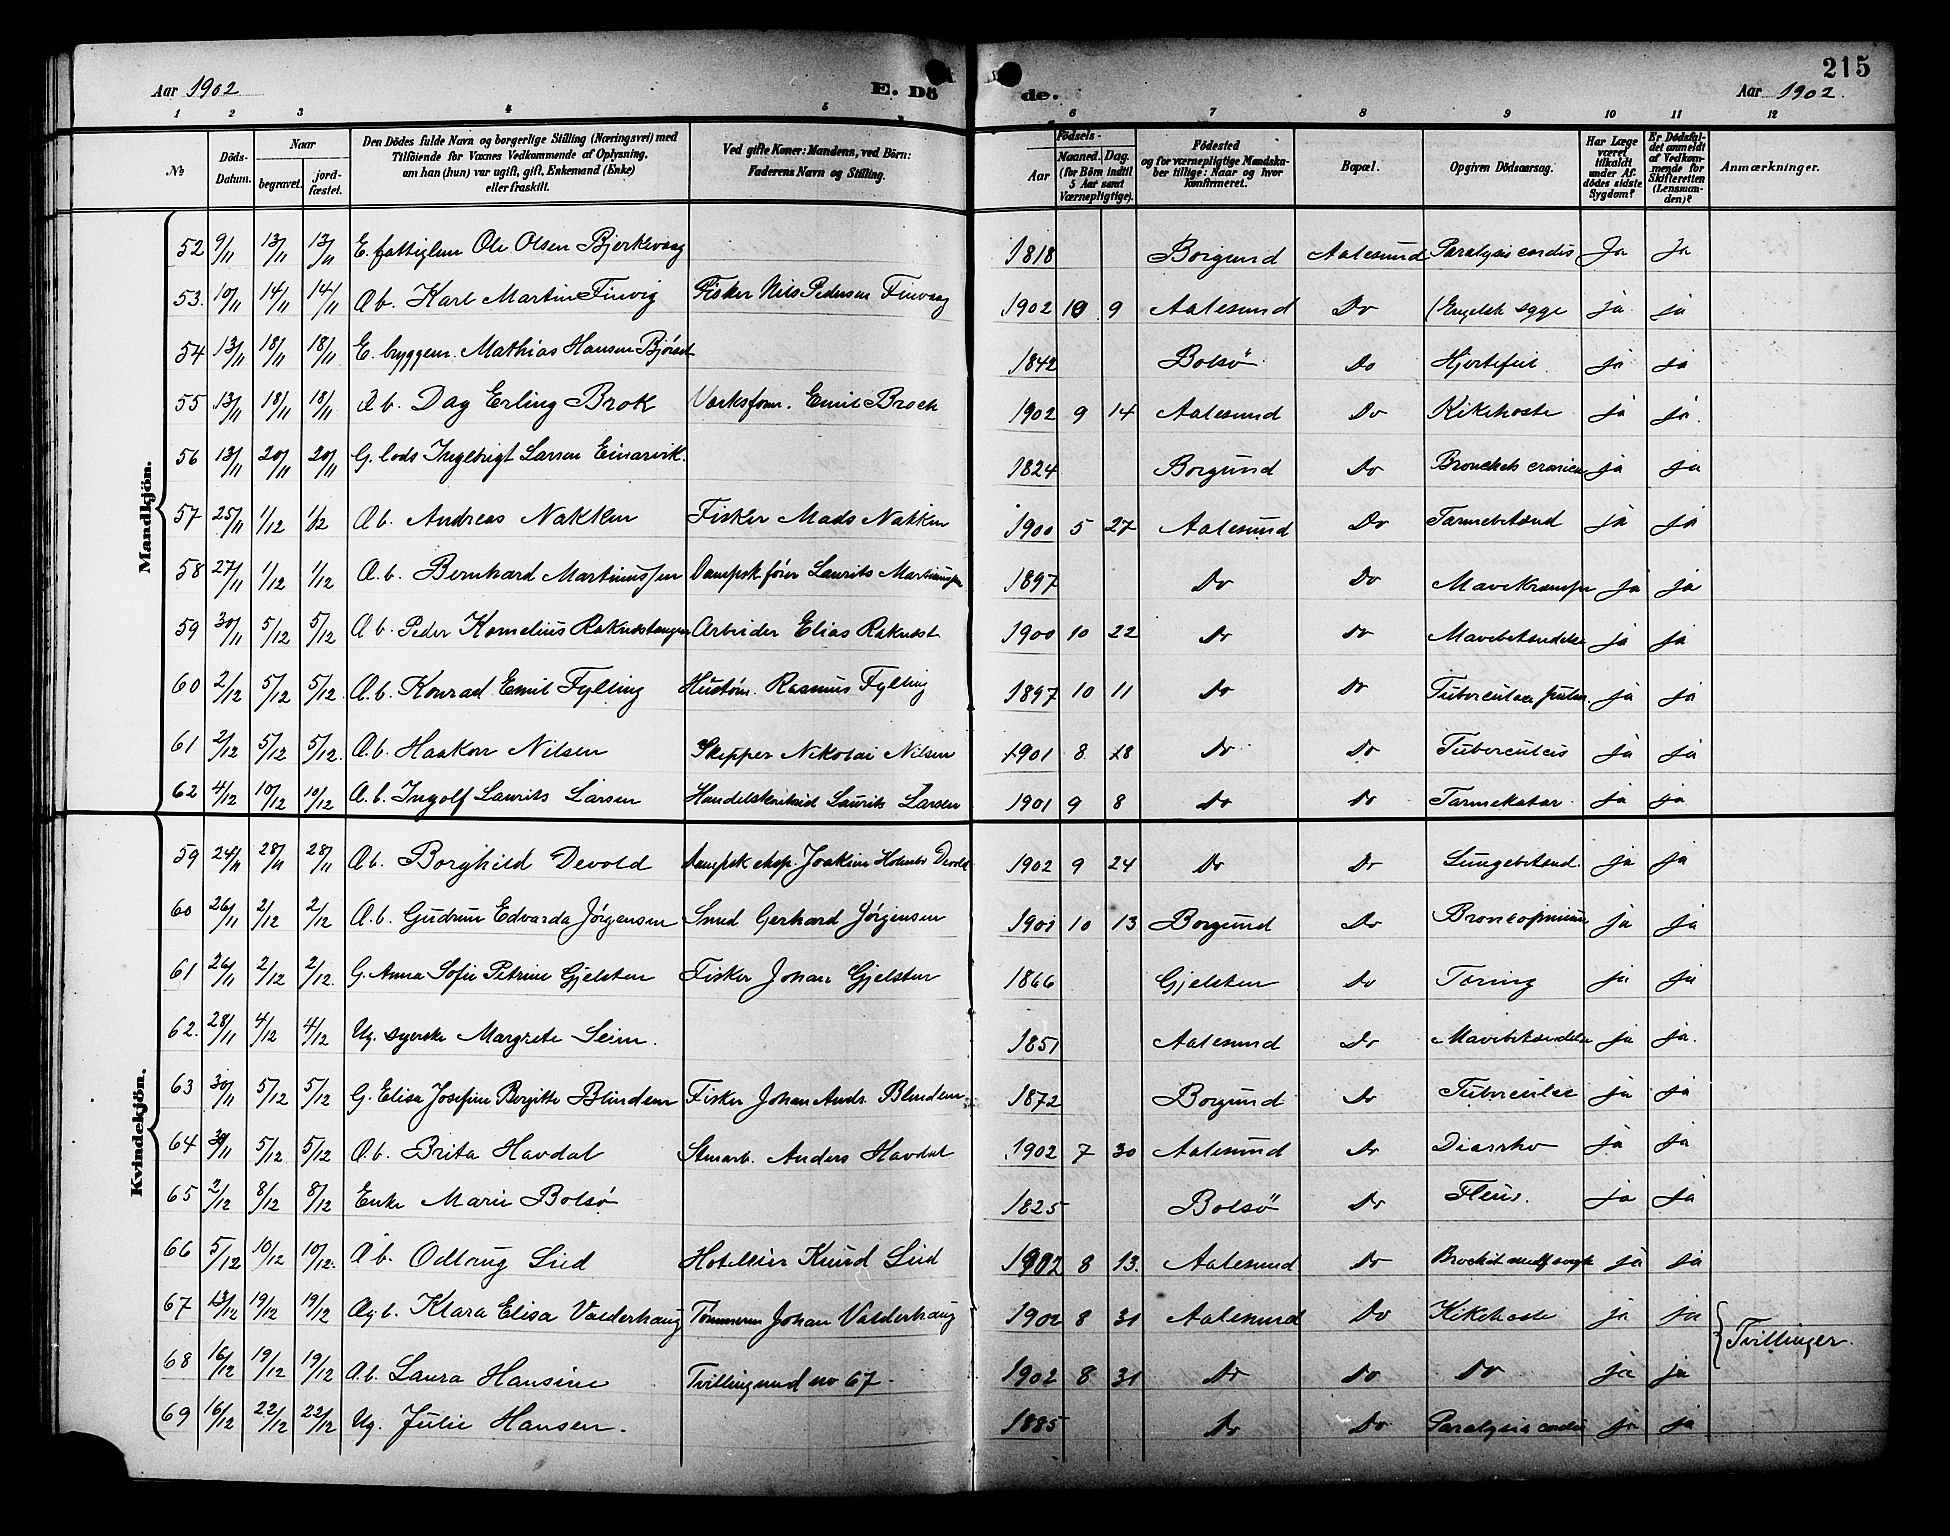 215
Aar 1902 E. Dö de. Aar 1902.
1 2 3 4 5 6 7 8 9 10 11 12
№ Döds-Datum. Naar begravet. jord-fæstet. Den Dödes fulde Navn og borgerlige Stilling (Næringsvei) med Tilföiende for Voxnes Vedkommende af Oplysning, om han (hun) var ugift, gift, Enkemand (Enke) eller fraskilt. Ved gifte Koner: Mandens, ved Börn: Faderens Navn og Stilling. Födsels- Aar Maaned. Dag. (for Börn indtil 5 Aar samt Værnepligtige). Födested og for værnepligtige Mandskaber tillige: Naar og hvor konfirmeret. Bopæl. Opgiven Dödsaarsag. Har Læge været tilkaldt under Afdödes sidste Sygdom? Er Dödsfaldet anmeldt af Vedkommende for Skifteretten (Lensmanden)? Anmærkninger.
Mandkjön.
52 9/11 13/11 13/11 E. fattiglem Ole Olsen Bjerkevaag 1818 Borgund Aalesund Paralysis cordis Ja Ja
53. 10/11 14/11 14/11 Æ b. Karl Martin Finvig Fisker Nils Pedersen Finvaag 1902 10 9 Aalesund Do Engelsk syge ja ja
54 13/11 18/11 18/11 E. byggem. Mathias Hansen 1842 Bolsö Do Hjertefeil ja ja
55 13/11 18/11 18/11 Æ b. Dag Erling Brok Værksform. Emil Broch 1902 9 14 Aalesund Do Kikehoste ja ja.
56 13/11 20/11 20/11 G. lods Ingebrigt Larsen Einarvik. 1824 Borgund Do ja ja
57 25/11 1/12 1/12 Æ b. Andreas Nakken Fisker Mads Nakken 1900 5 27 Aalesund Do Tarmebetænd ja ja
58 27/11 1/12 1/12 Æ. b. Bernhard Martinussen Dampskfører Laurits Martinussen 1897 Do Do Mavekrampe ja ja
59 30/11 5/12 5/12 Æ b. Peder Kornelius Rakvastangen Arbeider Elias Rakvast 1900 10 22 Do Do Mavebetændelse ja ja
60 2/12 5/12 5/12. Æ. b. Konrad Emil Fylling Hustøm. Rasmus Fylling 1897 10 11 Do Do ja ja
61 2/12 5/12 5/12. Æ. b. Haakon Nilsen Skipper Nikolai Nilsen 1901 8 18 Do Do Tuberculos ja ja
62 4/12 10/12 10/12 Æ. b. Ingolf Laurits Larsen Laurits Larsen 1901 9 8 Do Do Tarmekatar. ja ja
Kvindekjön.
59 24/11 28/11 28/11 Æ b. Borghild Devold Dampsk eksp. Joakim Holmbo Devold 1902 9 24 Do Do Lungebetænd. ja ja
60 26/11 2/12 2/12 Æ. b. Gudrun Edvarda Jørgensen Smed Gerhard Jørgensen 1901 10 13 Borgund Do ja ja
61 26/11 2/12 2/12. G. Anna Sofie Petrine Gjelsten Fisker Johan Gjelsten 1866 Gjelsten Do Tæring ja ja
62. 28/11 4/12 4/12 Ug. syerske Margrete Seim. 1851 Aalesund Do Mavebetændelse ja ja.
63 30/11 5/12 5/12 G. Elisa Josefine Bergitte Blindem Fisker Johan Andr. Blindem 1872 Borgund Do Tuberculos ja ja
64 30/11 5/12 5/12 Æ. b. Brita Havdal Stenarb. Anders Havdal 1902 7 30 Aalesund Do Diarrho ja ja
65 2/12 8/12 8/12 Enke Marie Bolsø 1825 Bolsö Do ja ja
66 5/12 10/12 10/12. Æ b. Odlaug Lied Hotelleier Knud Lied 1902 8 13. Aalesund Do ja ja
67 13/12 19/12 19/12 Æg b. Klara Elisa Valderhaug Tømmerm Johan Valderhaug 1902 8 31 Aalesund Do Kikehoste ja ja Tvillinger.
68 16/12 19/12 19/12 Æ b. Laura Hansine Tvilling med no 67. 1902 8 31 Do Do Do ja ja
69 16/12 22/12 22/12 Ug. Julie Hansen. 1885 Do Do Paralysis cordis ja ja